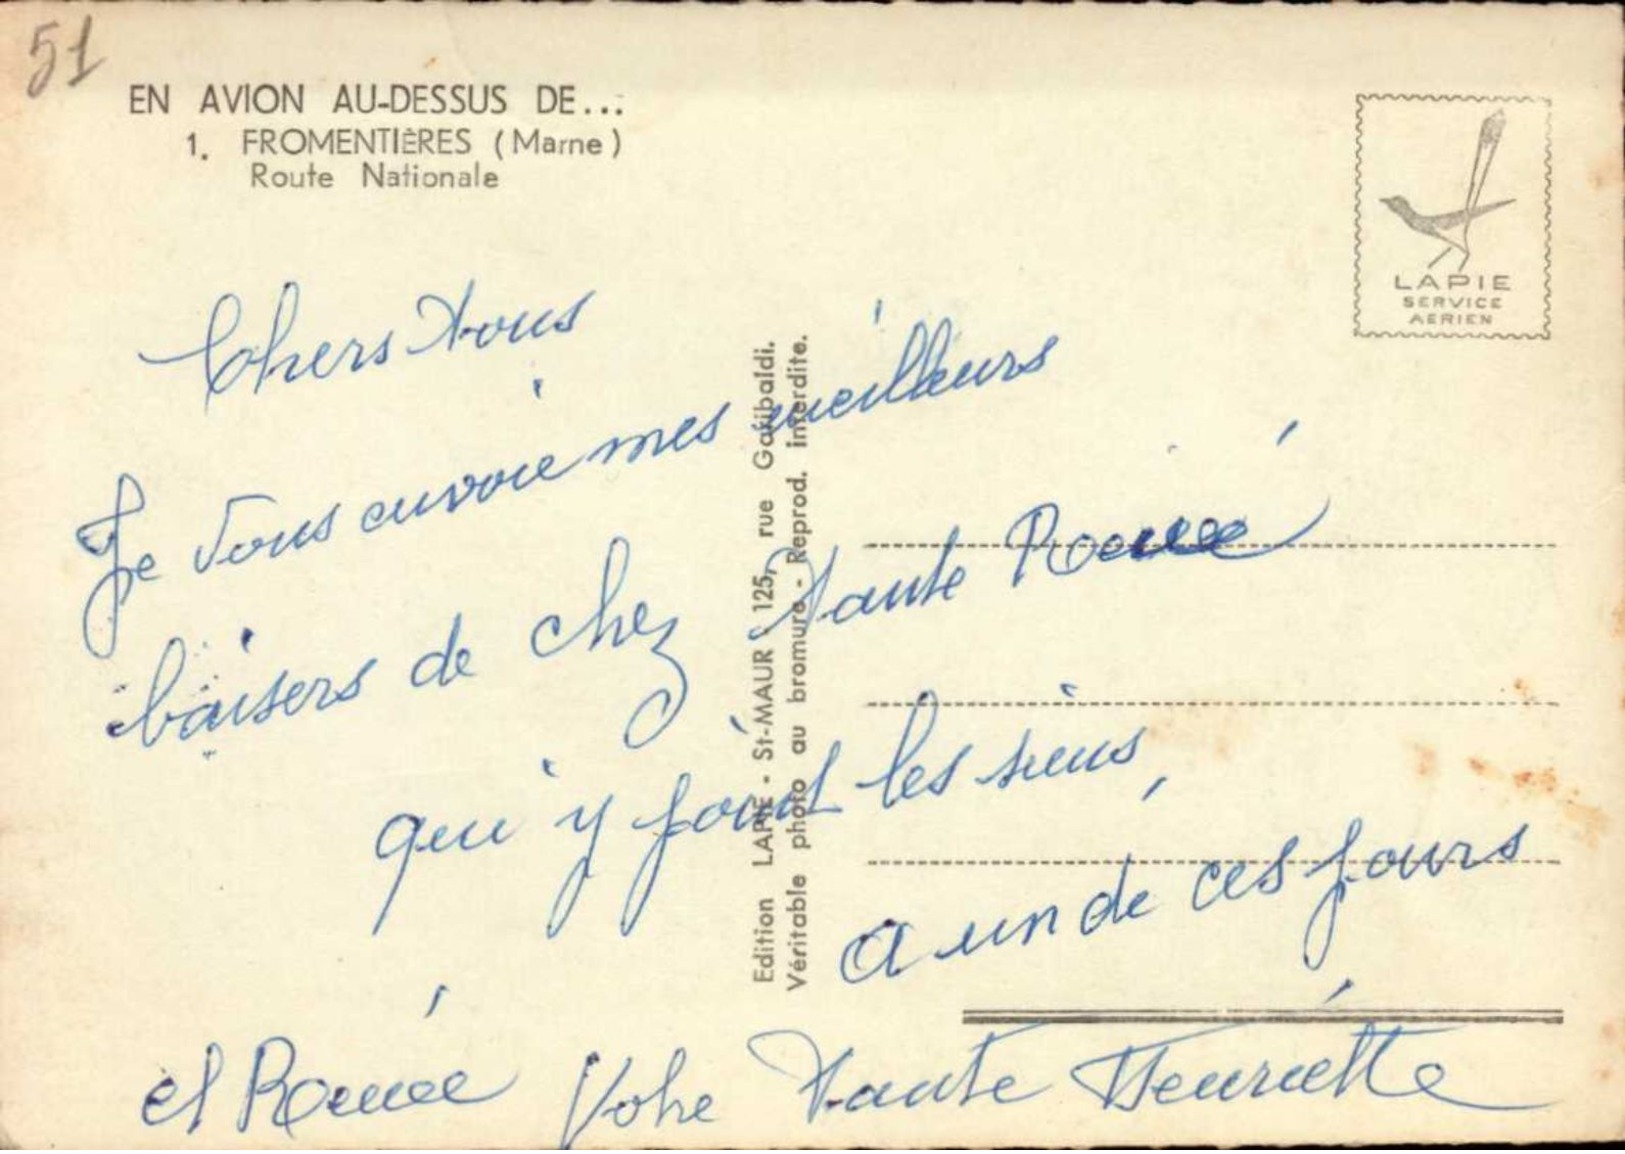 51
EN AVION AU-DESSUS DE...
1. FROMENTIÈRES (Marne)
Route Nationale
LAPIE
SERVICE
AERIEN
Chers Tous
Je vous envoie mes meilleurs
baisers de chez Tante
qui y joint les siens
a un de ces jours
et Votre Tante Henriette
Edition LAPIE - St-MAUR - 125, rue Garibaldi.
Véritable photo au bromure - Reprod. interdite.